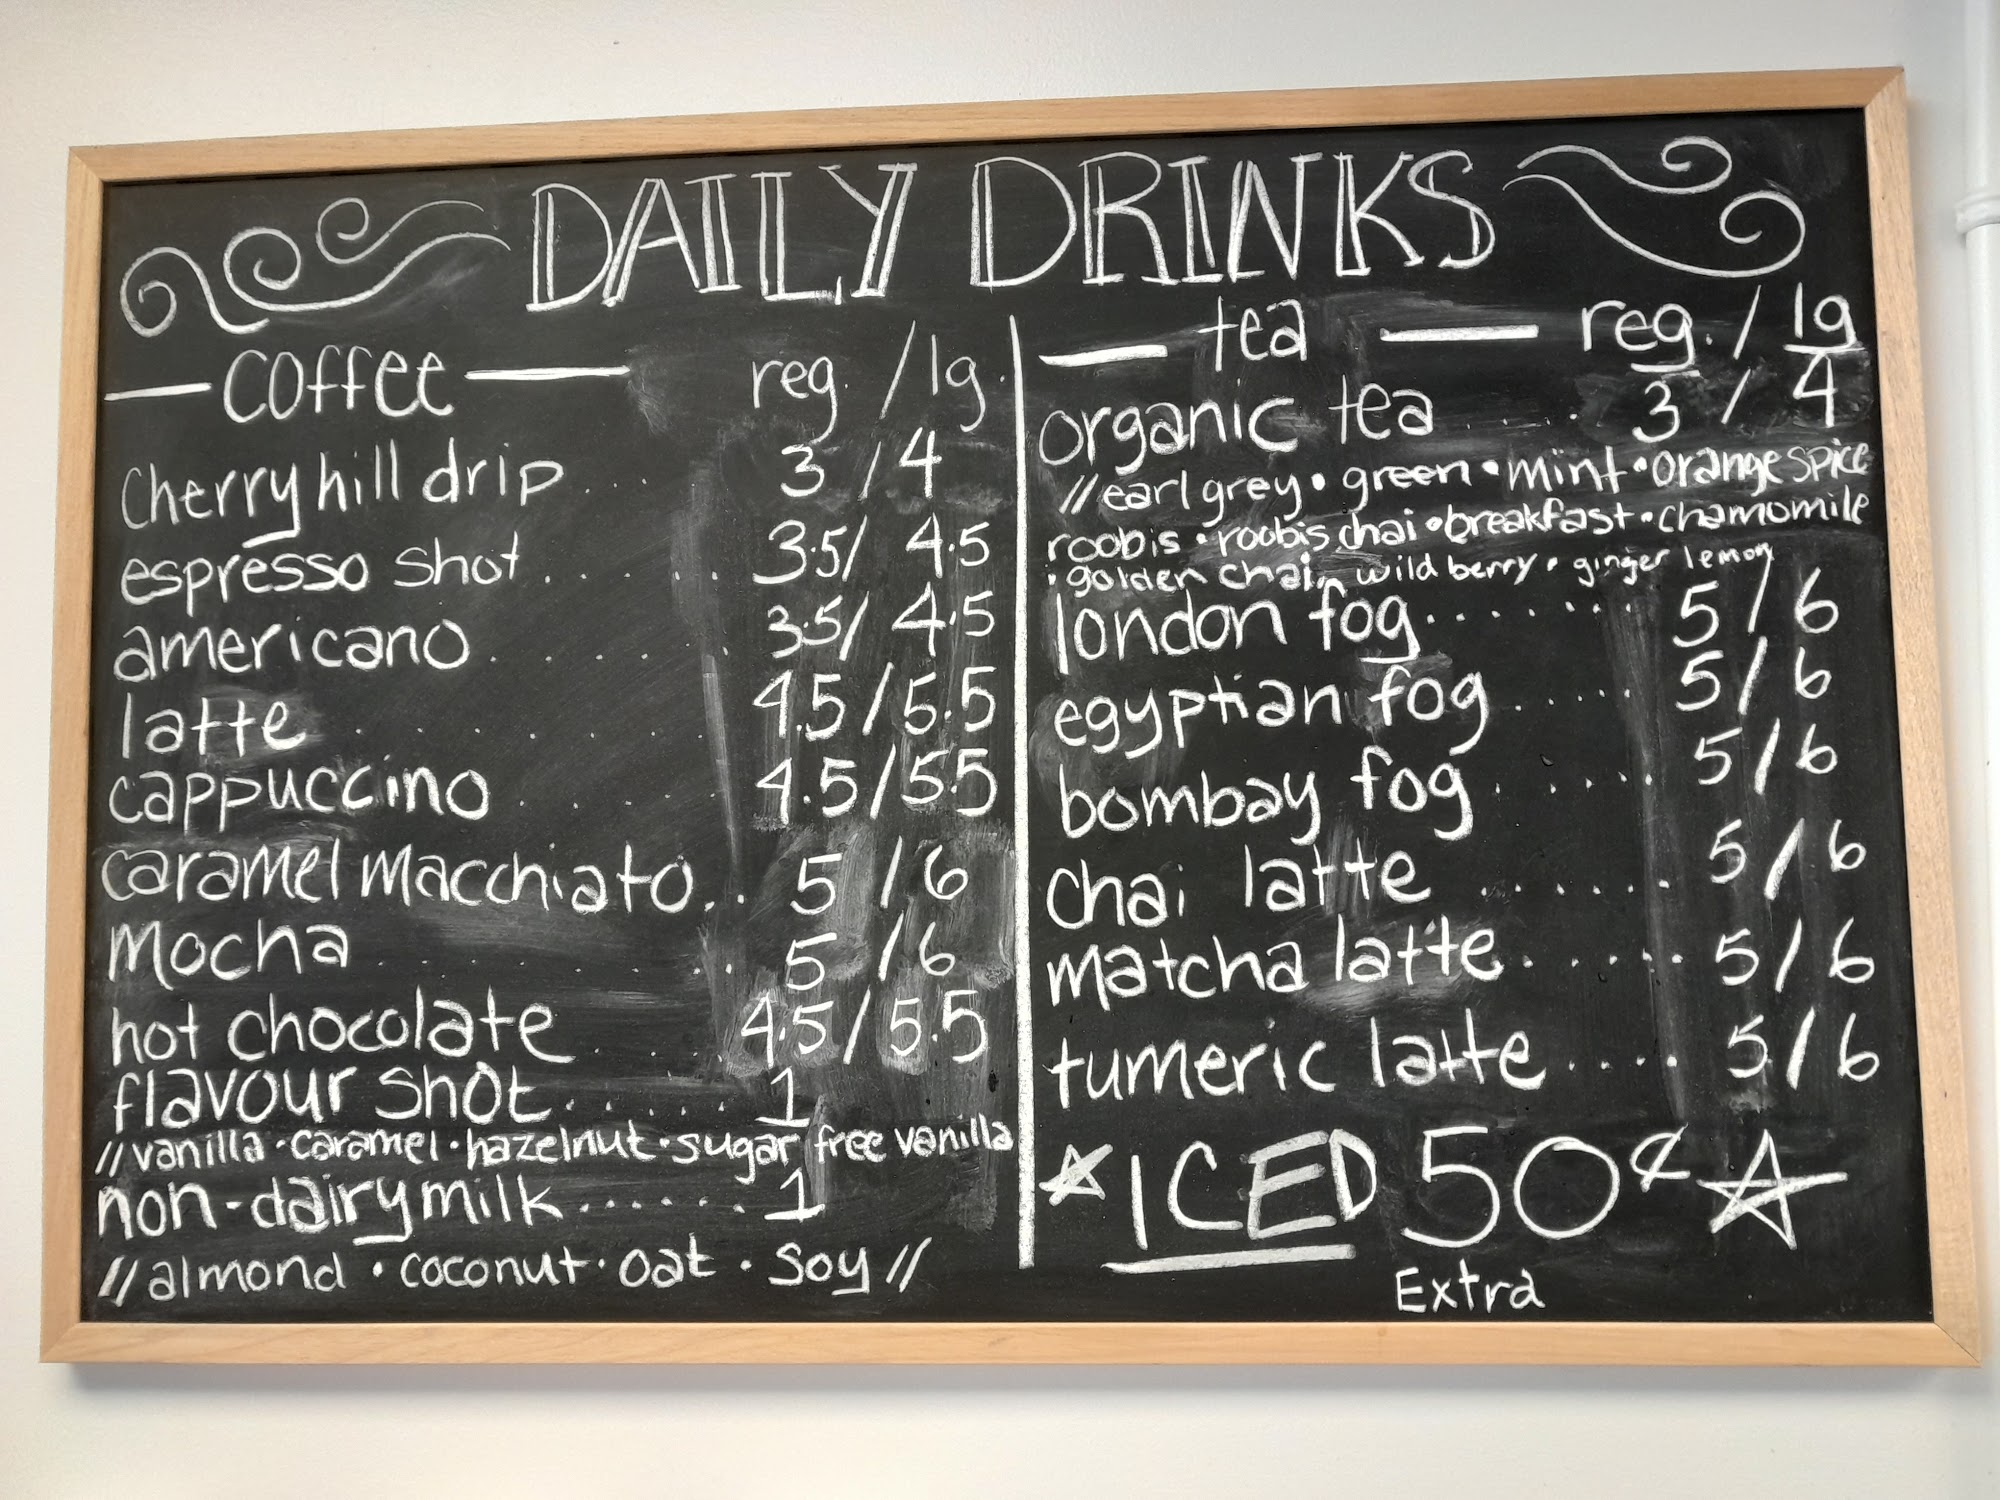 DAILY DRINKS
coffee reg. / lg.
Cherry hill drip ... 3 / 4
espresso shot ..... 3.5 / 4.5
americano ..... 3.5 / 4.5
latte ...... 4.5 / 5.5
cappuccino .... 4.5 / 5.5
caramel macchiato .. 5 / 6
mocha ....... 5 / 6
hot chocolate .... 4.5 / 5.5
flavour shot ...... 1
// vanilla • caramel • hazelnut • sugar free vanilla
non-dairy milk ...... 1
// almond • coconut • oat • soy //
tea reg. / lg
organic tea .... 3 / 4
// earl grey • green • mint • orange spice
roobis • roobis chai • breakfast • chamomile
• golden chai, wild berry • ginger lemon
london fog ....... 5 / 6
egyptian fog ..... 5 / 6
bombay fog ..... 5 / 6
chai latte ...... 5 / 6
matcha latte ..... 5 / 6
tumeric latte .... 5 / 6
ICED 50¢
Extra